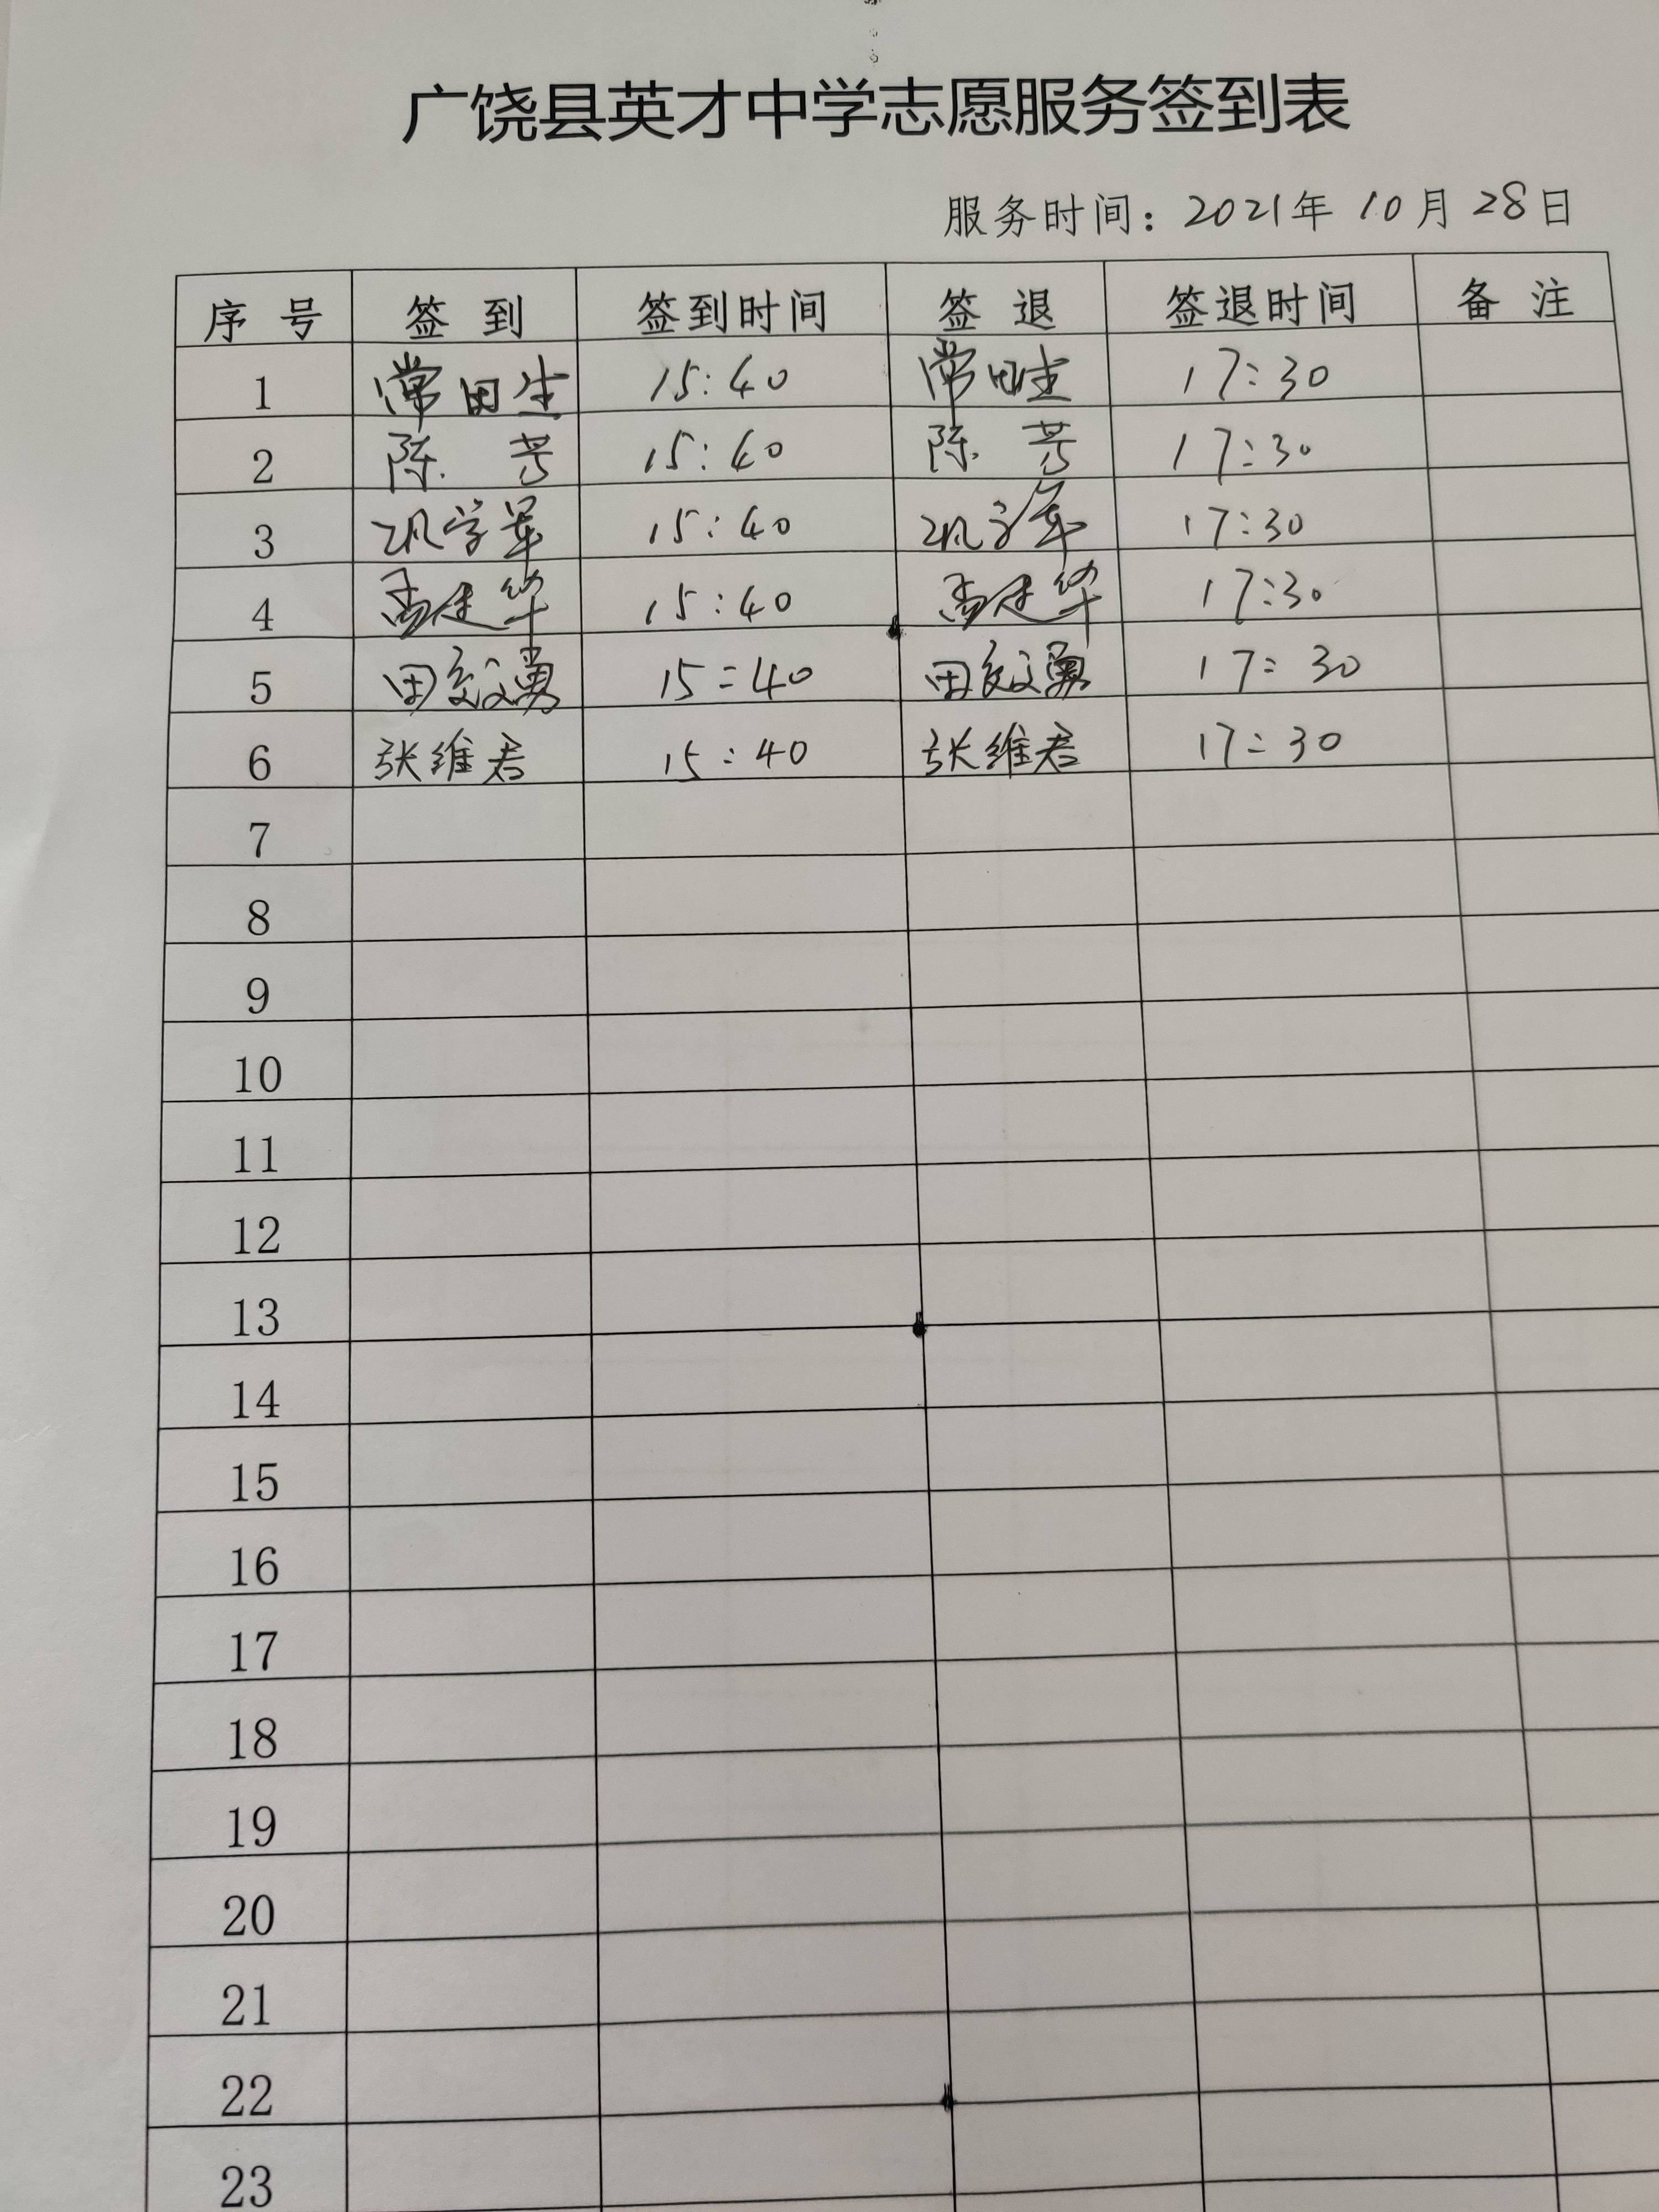 广饶县英才中学志愿服务签到表
服务时间：2021年 10月 28日
序号 签到 签到时间 签退 签退时间 备注
1 常田生 15:40 常田生 17:30
2 陈芳 15:40 陈芳 17:30
3 巩学军 15:40 巩学军 17:30
4 孟建华 15:40 孟建华 17:30
5 田文勇 15:40 田文勇 17:30
6 张维君 15:40 张维君 17:30
7
8
9
10
11
12
13
14
15
16
17
18
19
20
21
22
23